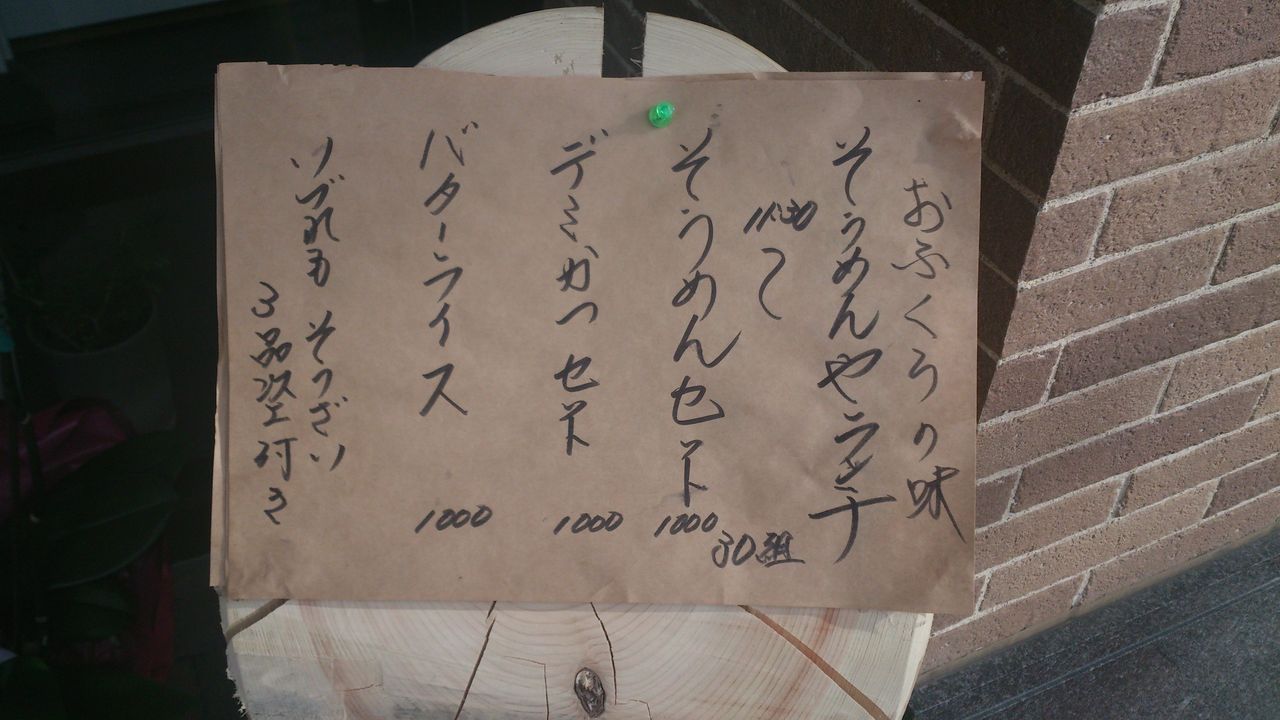 おふくろの味
そうめんやランチ
11:30
〜
30組
そうめんセット 1000
デミかつセット 1000
バターライス 1000
いづれも そうざい
3品盗付き